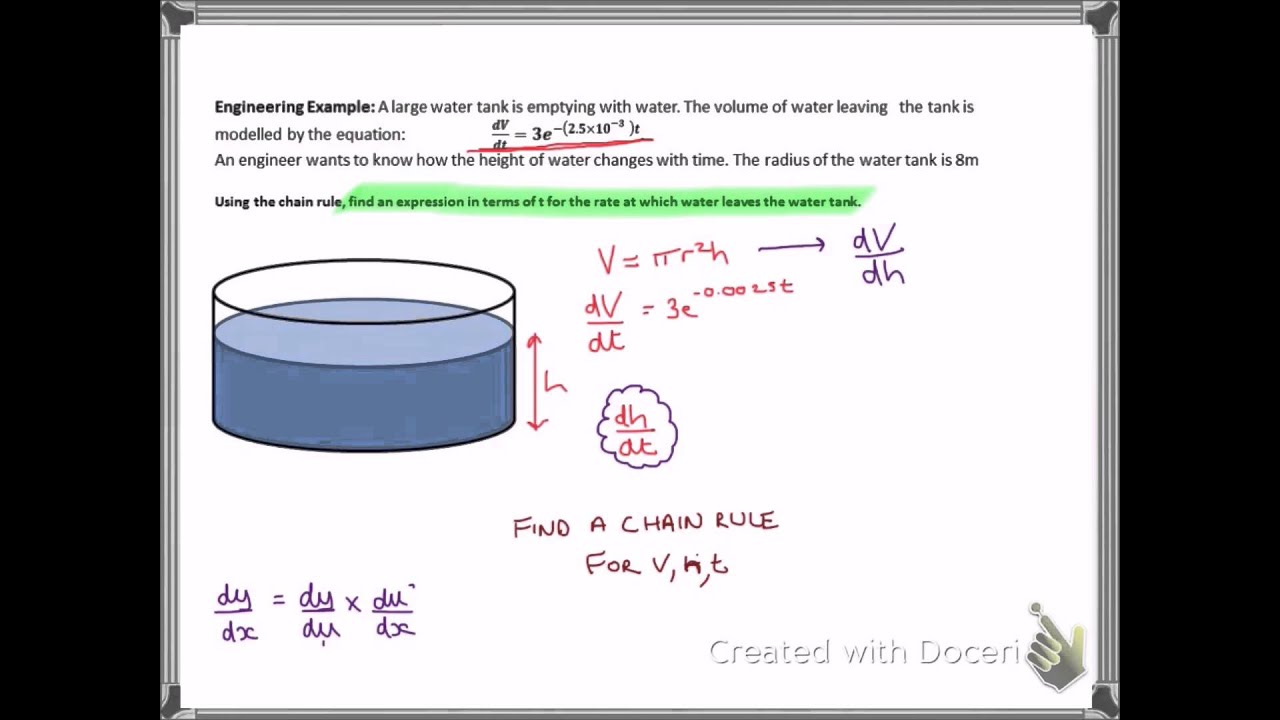 Engineering Example: A large water tank is emptying with water. The volume of water leaving the tank is
modelled by the equation: dV/dt = 3e^-(2.5×10^-3)t
An engineer wants to know how the height of water changes with time. The radius of the water tank is 8m
Using the chain rule, find an expression in terms of t for the rate at which water leaves the water tank.
V = πr²h → dV/dh
dV/dt = 3e^-0.0025t
h
dh/dt
FIND A CHAIN RULE
FOR V, h, t
dy/dx = dy/du × du/dx
Created with Doceri